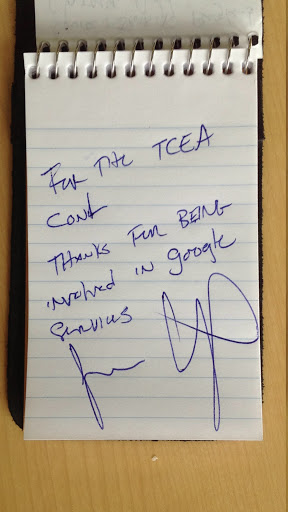 For The TCEA
Conf
Thanks For BEING
involved in google
Services